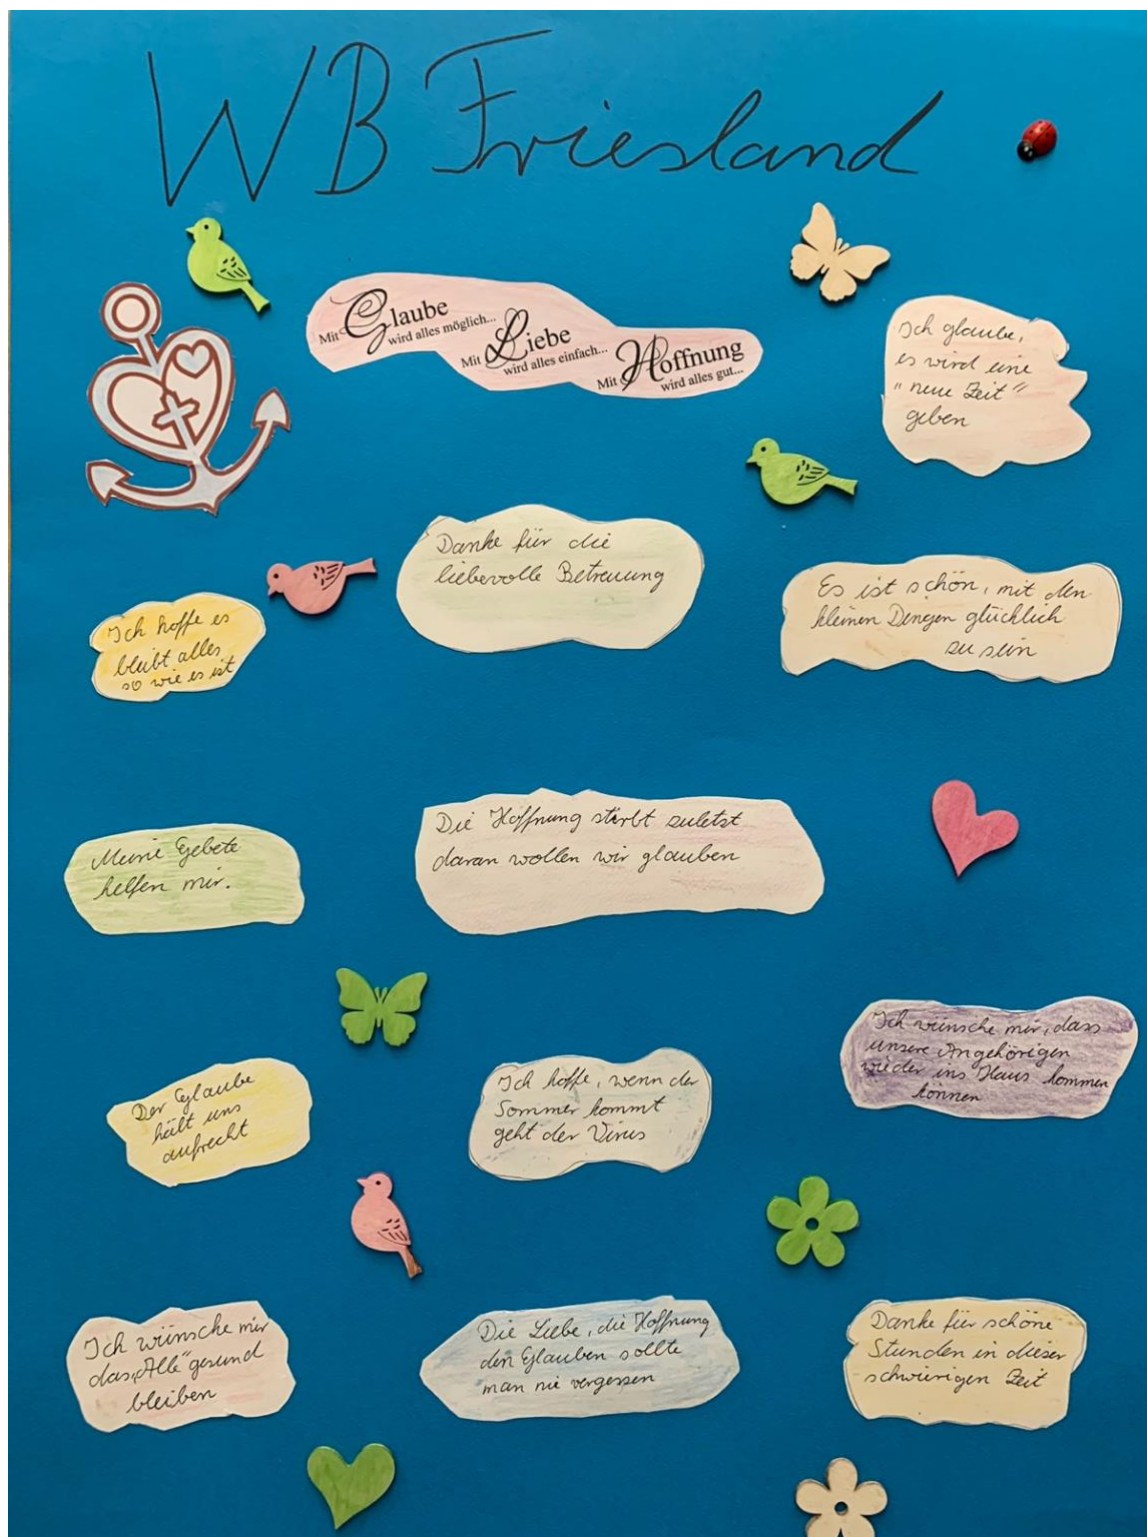 WB Friesland
Mit Glaube
wird alles möglich...
Mit Liebe
wird alles einfach...
Mit Hoffnung
wird alles gut...
Ich glaube,
es wird eine
"neue Zeit"
geben
Danke für die
liebevolle Betreuung
Ich hoffe es
bleibt alles
so wie es ist
Es ist schön, mit den
kleinen Dingen glücklich
zu sein
Meine Gebete
helfen mir.
Die Hoffnung stirbt zuletzt
daran wollen wir glauben
Ich wünsche mir, dass
unsere Angehörigen
wieder ins Haus kommen
können
Der Glaube
hält uns
aufrecht
Ich hoffe, wenn der
Sommer kommt
geht der Virus
Ich wünsche mir
das „Alle" gesund
bleiben
Die Liebe, die Hoffnung
den Glauben sollte
man nie vergessen
Danke für schöne
Stunden in dieser
schwierigen Zeit